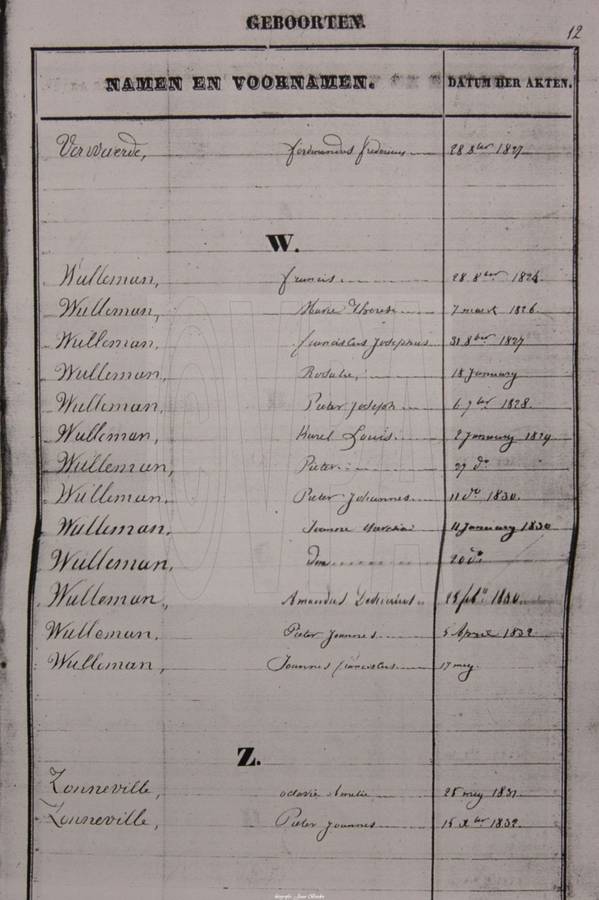 GEBOORTEN.
12
NAMEN EN VOORNAMEN. DATUM DER AKTEN.
Vervaerde, Ferdinandus Fredericus 28 8ber 1827
W.
Wulleman, Francis 28 8ber
Wulleman, Marie Therese 7 maert 1826.
Wulleman, Franciscus Josephus 31 8ber 1827
Wulleman, Rosalie, 18 January
Wulleman, Pieter Joseph 6 7ber 1828.
Wulleman, Karel Louis 2 January 1829
Wulleman, Pieter 27 do
Wulleman, Pieter Johannes 11 do 1830.
Wulleman, Joanne 11 January 1830
Wulleman, 20 do
Wulleman, Amandus
Wulleman, Pieter Joannes 5 April 1832.
Wulleman, Joannes Franciscus 17 mey.
Z.
Zonneville, octavie Amelie 25 mey 1831.
Zonneville, Pieter Joannes 15 Xber 1832.
OVVA